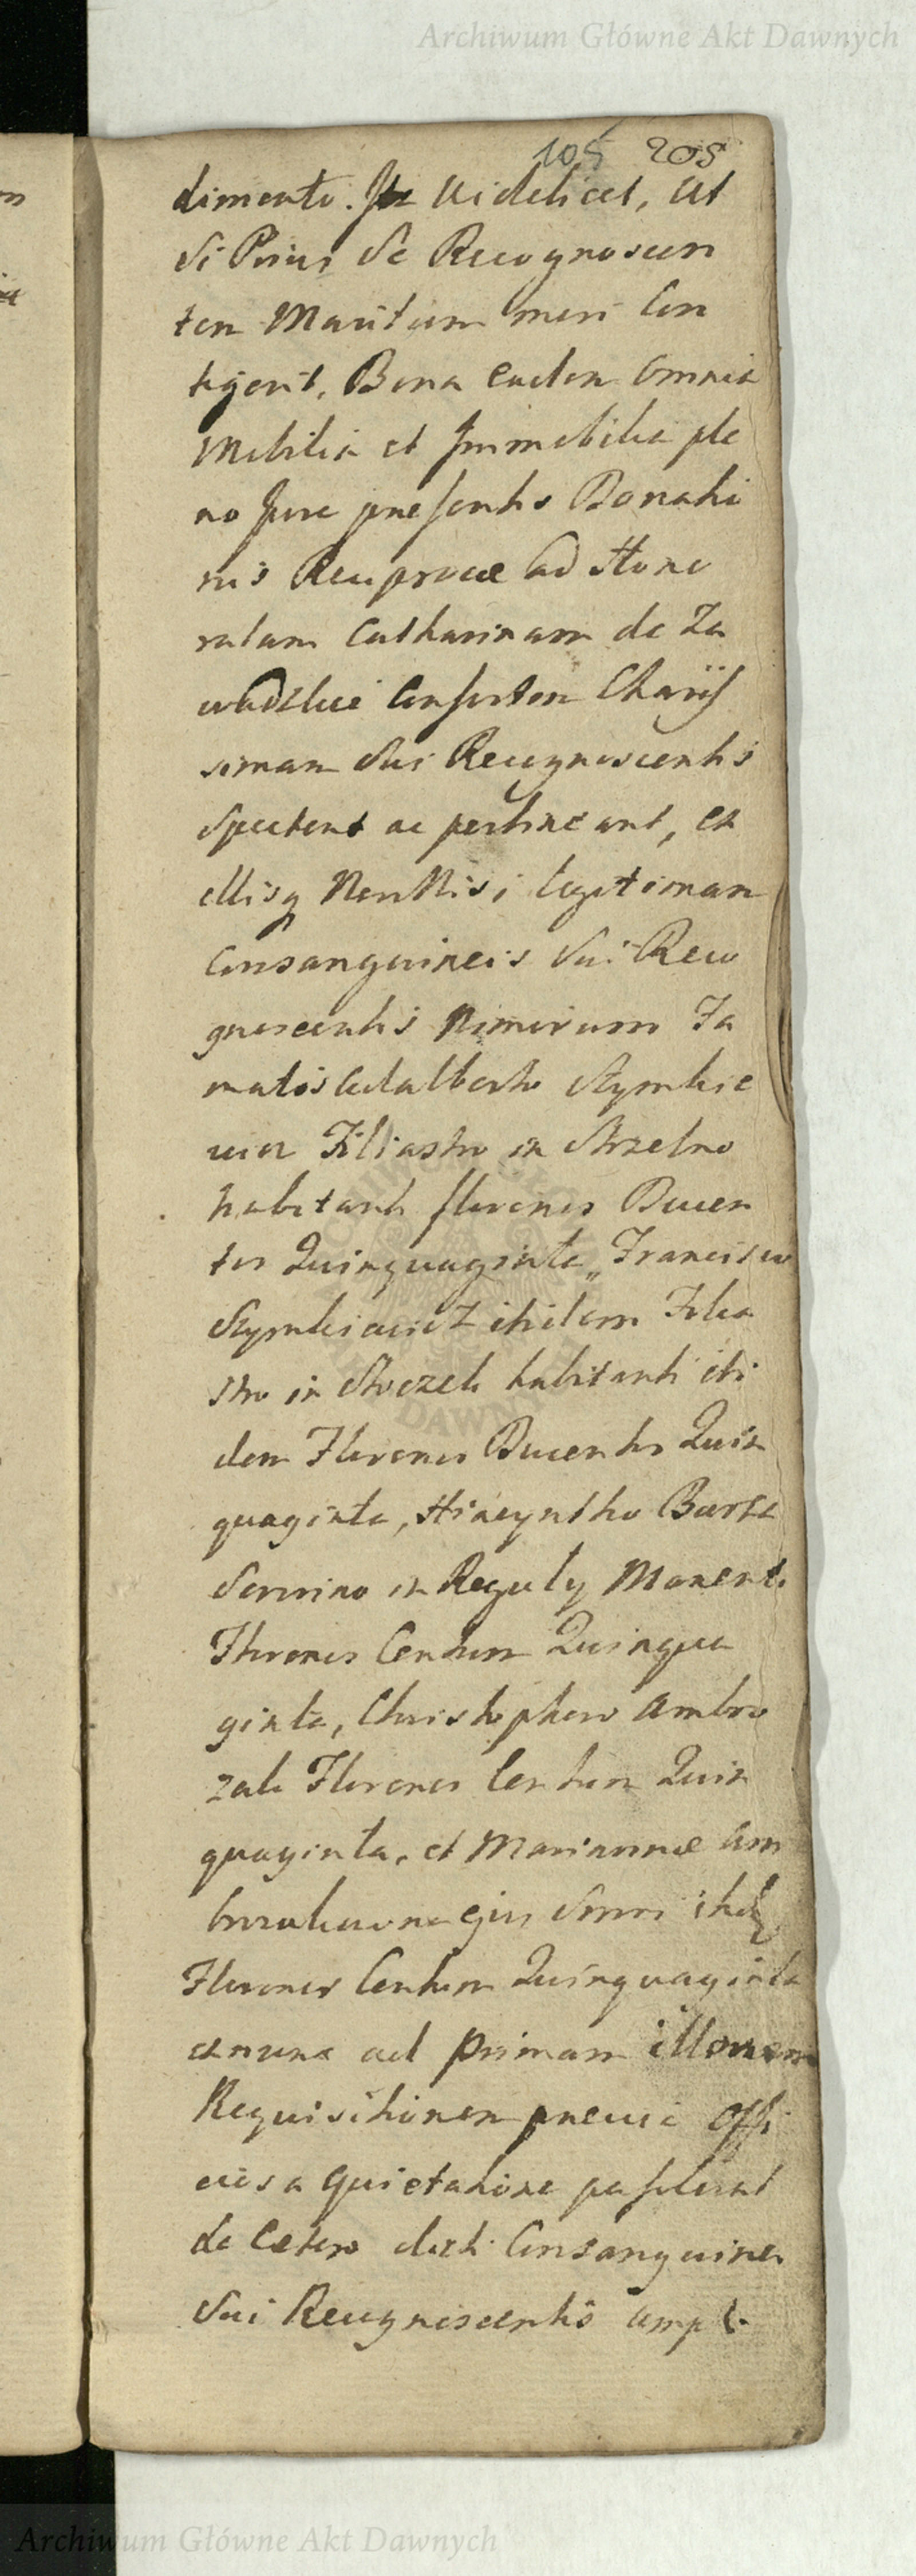 Archiwum Główne Akt Dawnych
105 205
dimento. Ita Videlicet, Ut
Si Prius Se Recognoscen
tem Maritum mori Con
tigerit, Bona eadem Omnia
Mobilia et Immobilia ple
no Jure præsentis Donatio
nis Reciprocæ ad Hono
ratam Catharinam de Za
Consortem Charis
simam Sui Recognoscentis
Spectent ac pertineant, ex
illisq Non Nisi legitimam
Consanguineis Sui Reco
gnoscentis Nimirum Fa
matis Adalberto Szymkie
wicz Filiastro in Strzelno
habitanti florenos Ducen
tos Quinquaginta„ Francisco
Szymkiewicz itidem Filia
stro in habitanti iti
dem Florenos Ducentos Quin
quaginta, Hiacyntho
in Reguły Manenti
Florenos Centum Quinqua
ginta, Christophoro Ambro
zak Florenos Centum Quin
quaginta, et Mariannæ Am
ejus Sorori itid
Florenos Centum Quinquaginta
ad primam illorum
Requisitionem prævia Offi
ciosa Quietatione
de Cetero dicti Consanguinei
Sui Recognoscentis ampl
Archiwum Główne Akt Dawnych